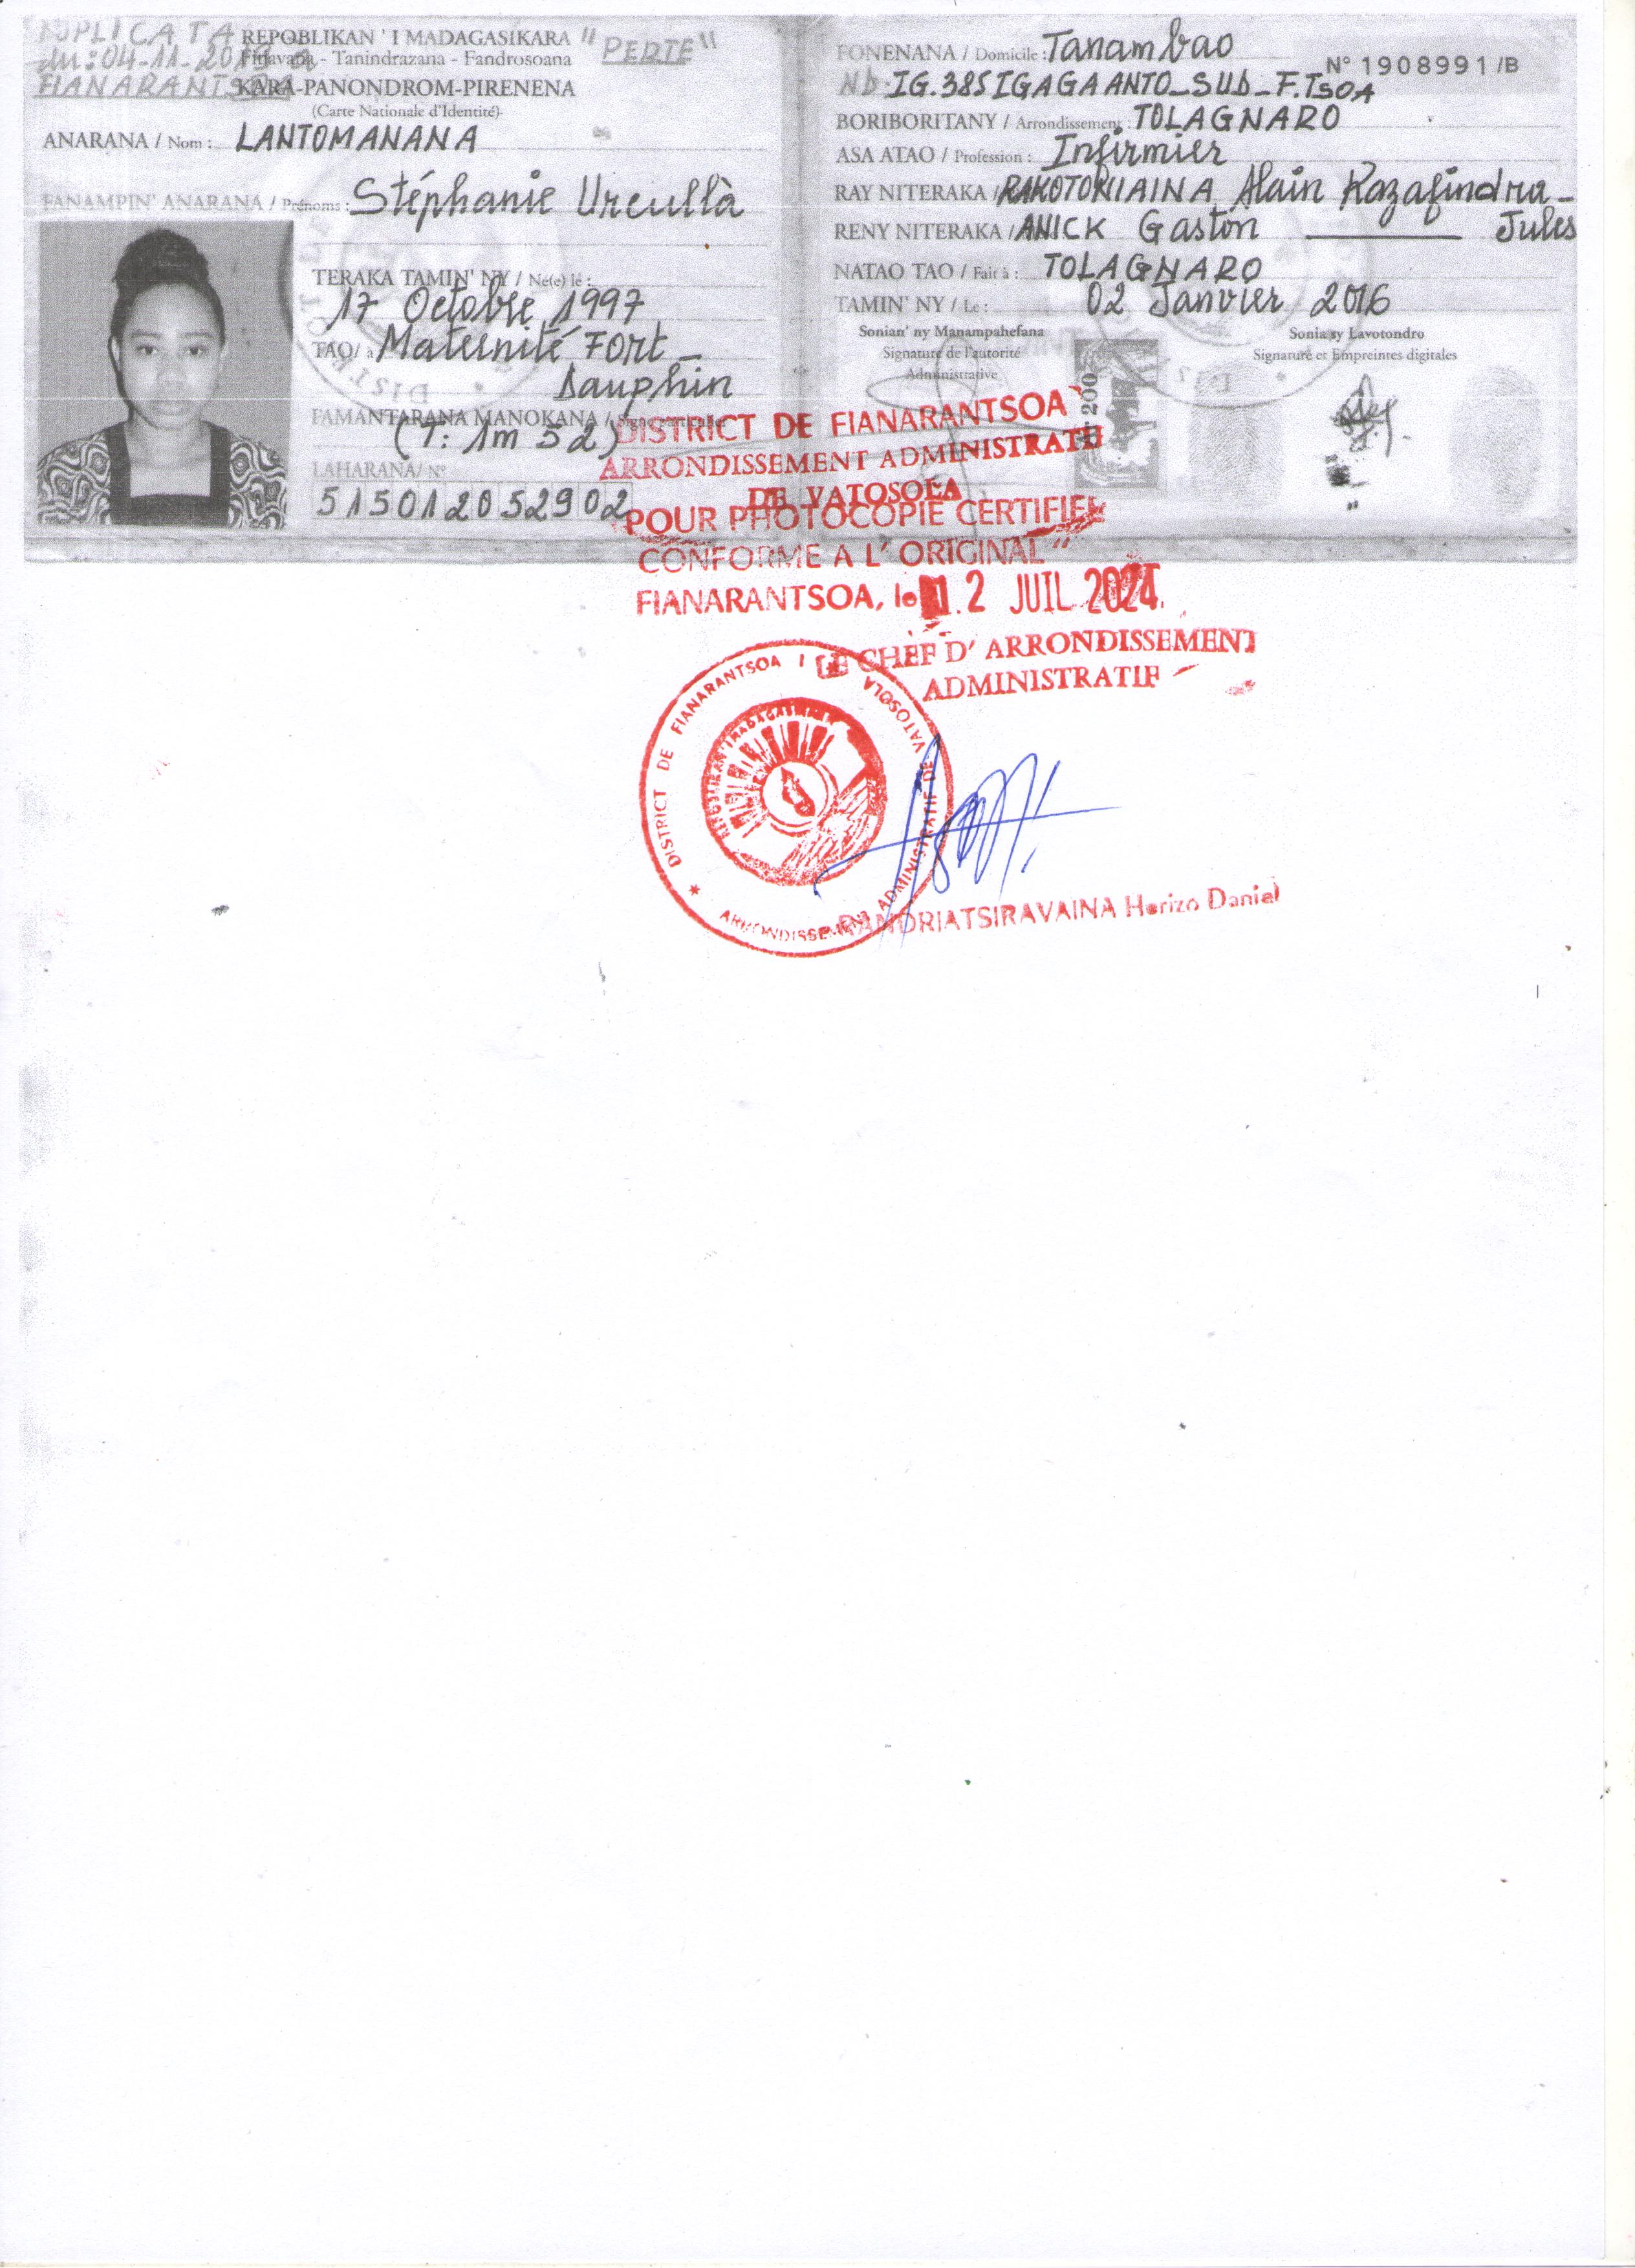 DUPLICATA
du: 04-11-20
FIANARANTSOA
REPOBLIKAN ' I MADAGASIKARA
"PERTE"
Fitiavana - Tanindrazana - Fandrosoana
KARA-PANONDROM-PIRENENA
(Carte Nationale d'Identité)
ANARANA / Nom : LANTOMANANA
FANAMPIN' ANARANA / Prénoms : Stéphanie Urcullà
TERAKA TAMIN' NY / Né(e) lé :
17 Octobre 1997
TAO/ à Maternité Fort -
Dauphin
FAMANTARANA MANOKANA /
(T: 1m 52)
LAHARANA/ N°
515012052902
FONENANA / Domicile : Tanambao
N° 1908991/B
Nb. IG.385 IGAGA ANTO_SUD_F.TSOA
BORIBORITANY / Arrondissement : TOLAGNARO
ASA ATAO / Profession : Infirmier
RAY NITERAKA / RAKOTONIAINA Alain Razafindra-
RENY NITERAKA / ANICK Gaston Jules
NATAO TAO / Fait à : TOLAGNARO
TAMIN' NY / Le : 02 Janvier 2016
Sonian' ny Manampahefana
Signature de l'autorité
Administrative
Sonia sy Lavotondro
Signature et Empreintes digitales
200
DISTRICT DE FIANARANTSOA
ARRONDISSEMENT ADMINISTRATIF
DE VATOSOLA
POUR PHOTOCOPIE CERTIFIEE
CONFORME A L' ORIGINAL "
FIANARANTSOA, le 12 JUIL 2024
LE CHEF D' ARRONDISSEMENT
ADMINISTRATIF
DISTRICT DE FIANARANTSOA I
ARRONDISSEMENT ADMINISTRATIF DE VATOSOLA
RANDRIATSIRAVAINA Herizo Daniel